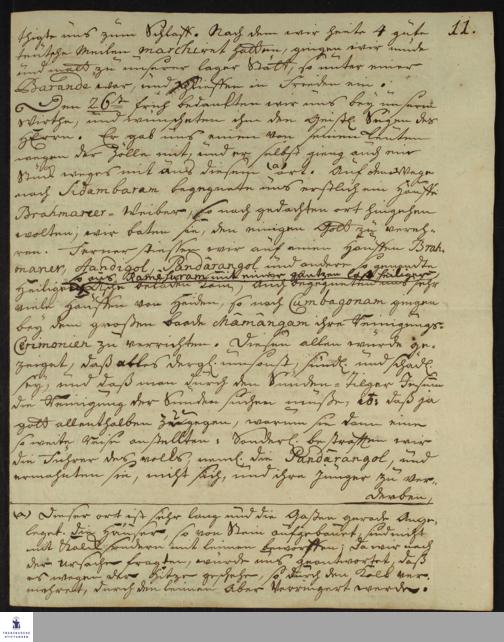 11.
thigte uns zum Schlaff. Nach dem wir heute 4 gute
teutsche Meilen marchiret hatten, gingen wir müde
und matt zu unserer lager Stätt, so unter einer
Barando war, und schlieffen in Frieden ein.
Den 26ten früh bedanckten wir uns bey unserm
Wirthe, und wünschten ihm den Geistl. Seegen des
HErrn. Er gab uns einen von seinen Leuten
wegen der Zölle mit, und er selbst gieng auch ein
Stück weges mit aus diesem (a) ort. Auf dem Wege
nach Sidambaram begegnete uns erstlich ein Hauffe
Brahmaner-Weiber, so nach gedachten ort hingehen
wolten; wir baten sie, den einigen Gott zu vereh-
ren. Ferner stiessen wir auf einen Hauffen Brah-
maner, Andigöl, Pandärangöl und andere so genandte
Heilige, so aus Ramesuram mit einer gantzen Last heiliger
beladen kam. Auch begegneten uns sehr
viele Hauffen von Heiden, so nach Cumbagonam gingen
bey dem grossen baade Mämängam ihre Reinigungs-
Cerimonien zu verrichten. Diesen allen wurde ge-
zeiget, daß alles dergl. umsonst, sündl. und schädl.
sey, und daß man durch den Sünden-tilger Jesum
die Reinigung der Sünden suchen müße, it: daß ja
Gott allenthalben zugegen, warum sie dann eine
so weite Reise anstellten: Sonderl. bestrafften wir
die Führer des volcks, neml. die Pandärangöl, und
ermahnten sie, nicht sich, und ihre Jünger zu ver-
derben,
(a) Dieser ort ist sehr lang und die Gaßen gerade ange-
leget. die Häuser so von Stein aufgebauet, sind nicht
mit Kalck sondern mit leimen beworffen; da wir nach
der Ursache fragten, wurde uns geantwortet, daß
es wegen der Hitze geschehe, so durch den Kalck ver-
mehret, durch den leimen aber verringert werde.
FRANCKESCHE
STIFTUNGEN